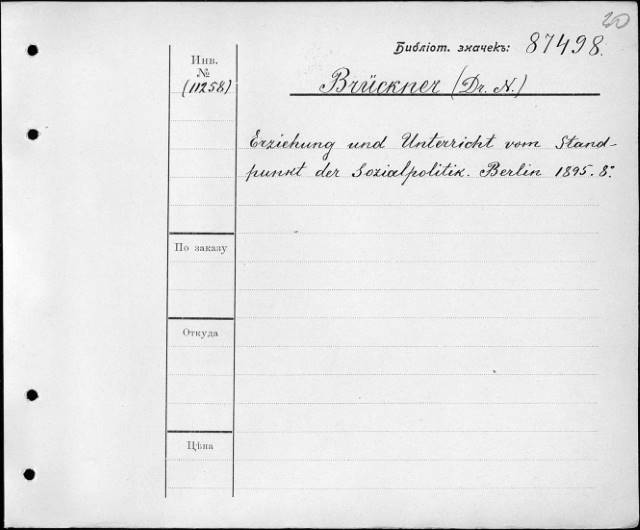 20
Библіот. значекъ: 87498.
Инв.
№
(11258)
Brückner (Dr. N.)
Erziehung und Unterricht vom Stand-
punkt der Sozialpolitik. Berlin 1895. 8°.
По заказу
Откуда
Цѣна